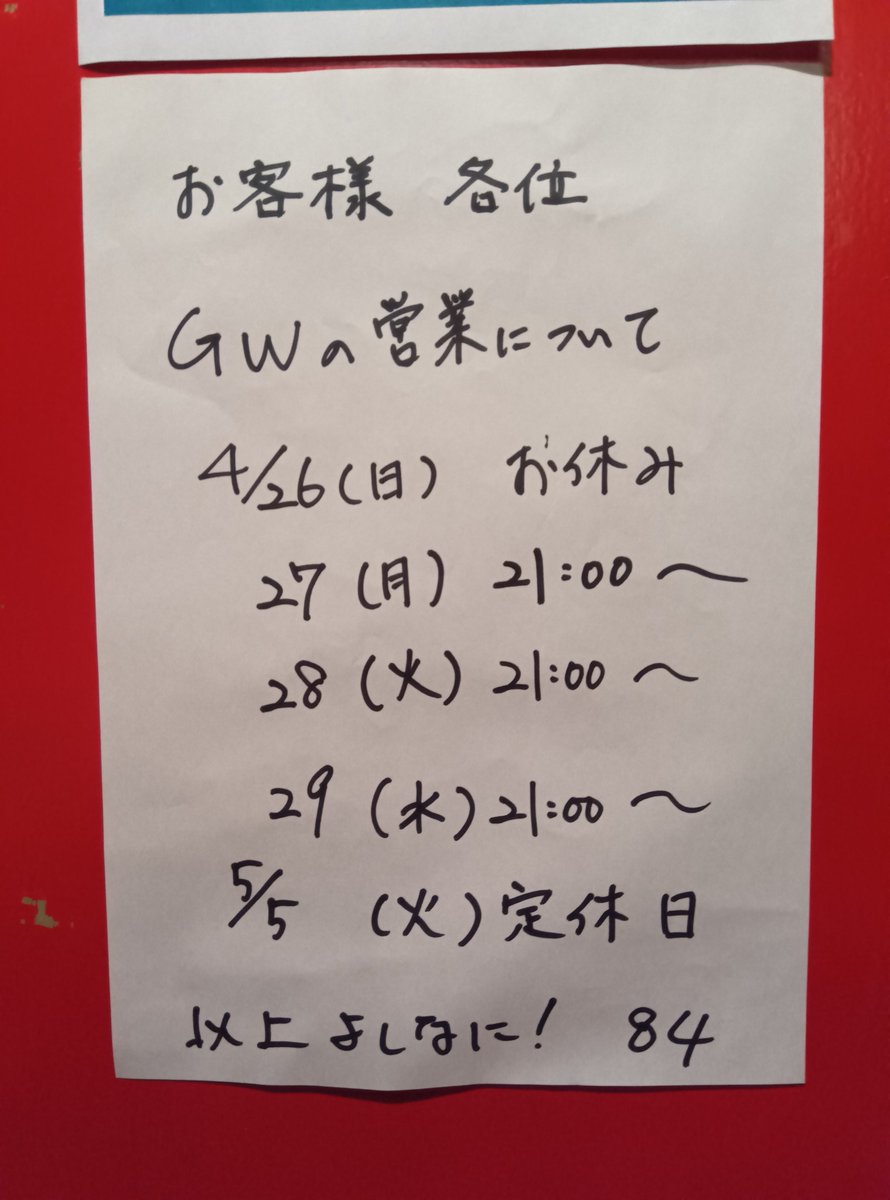 お客様 各位
GWの営業について
4/26(日) お休み
27(月) 21:00〜
28(火) 21:00〜
29(水) 21:00〜
5/5 (火)定休日
以上よしなに! 84